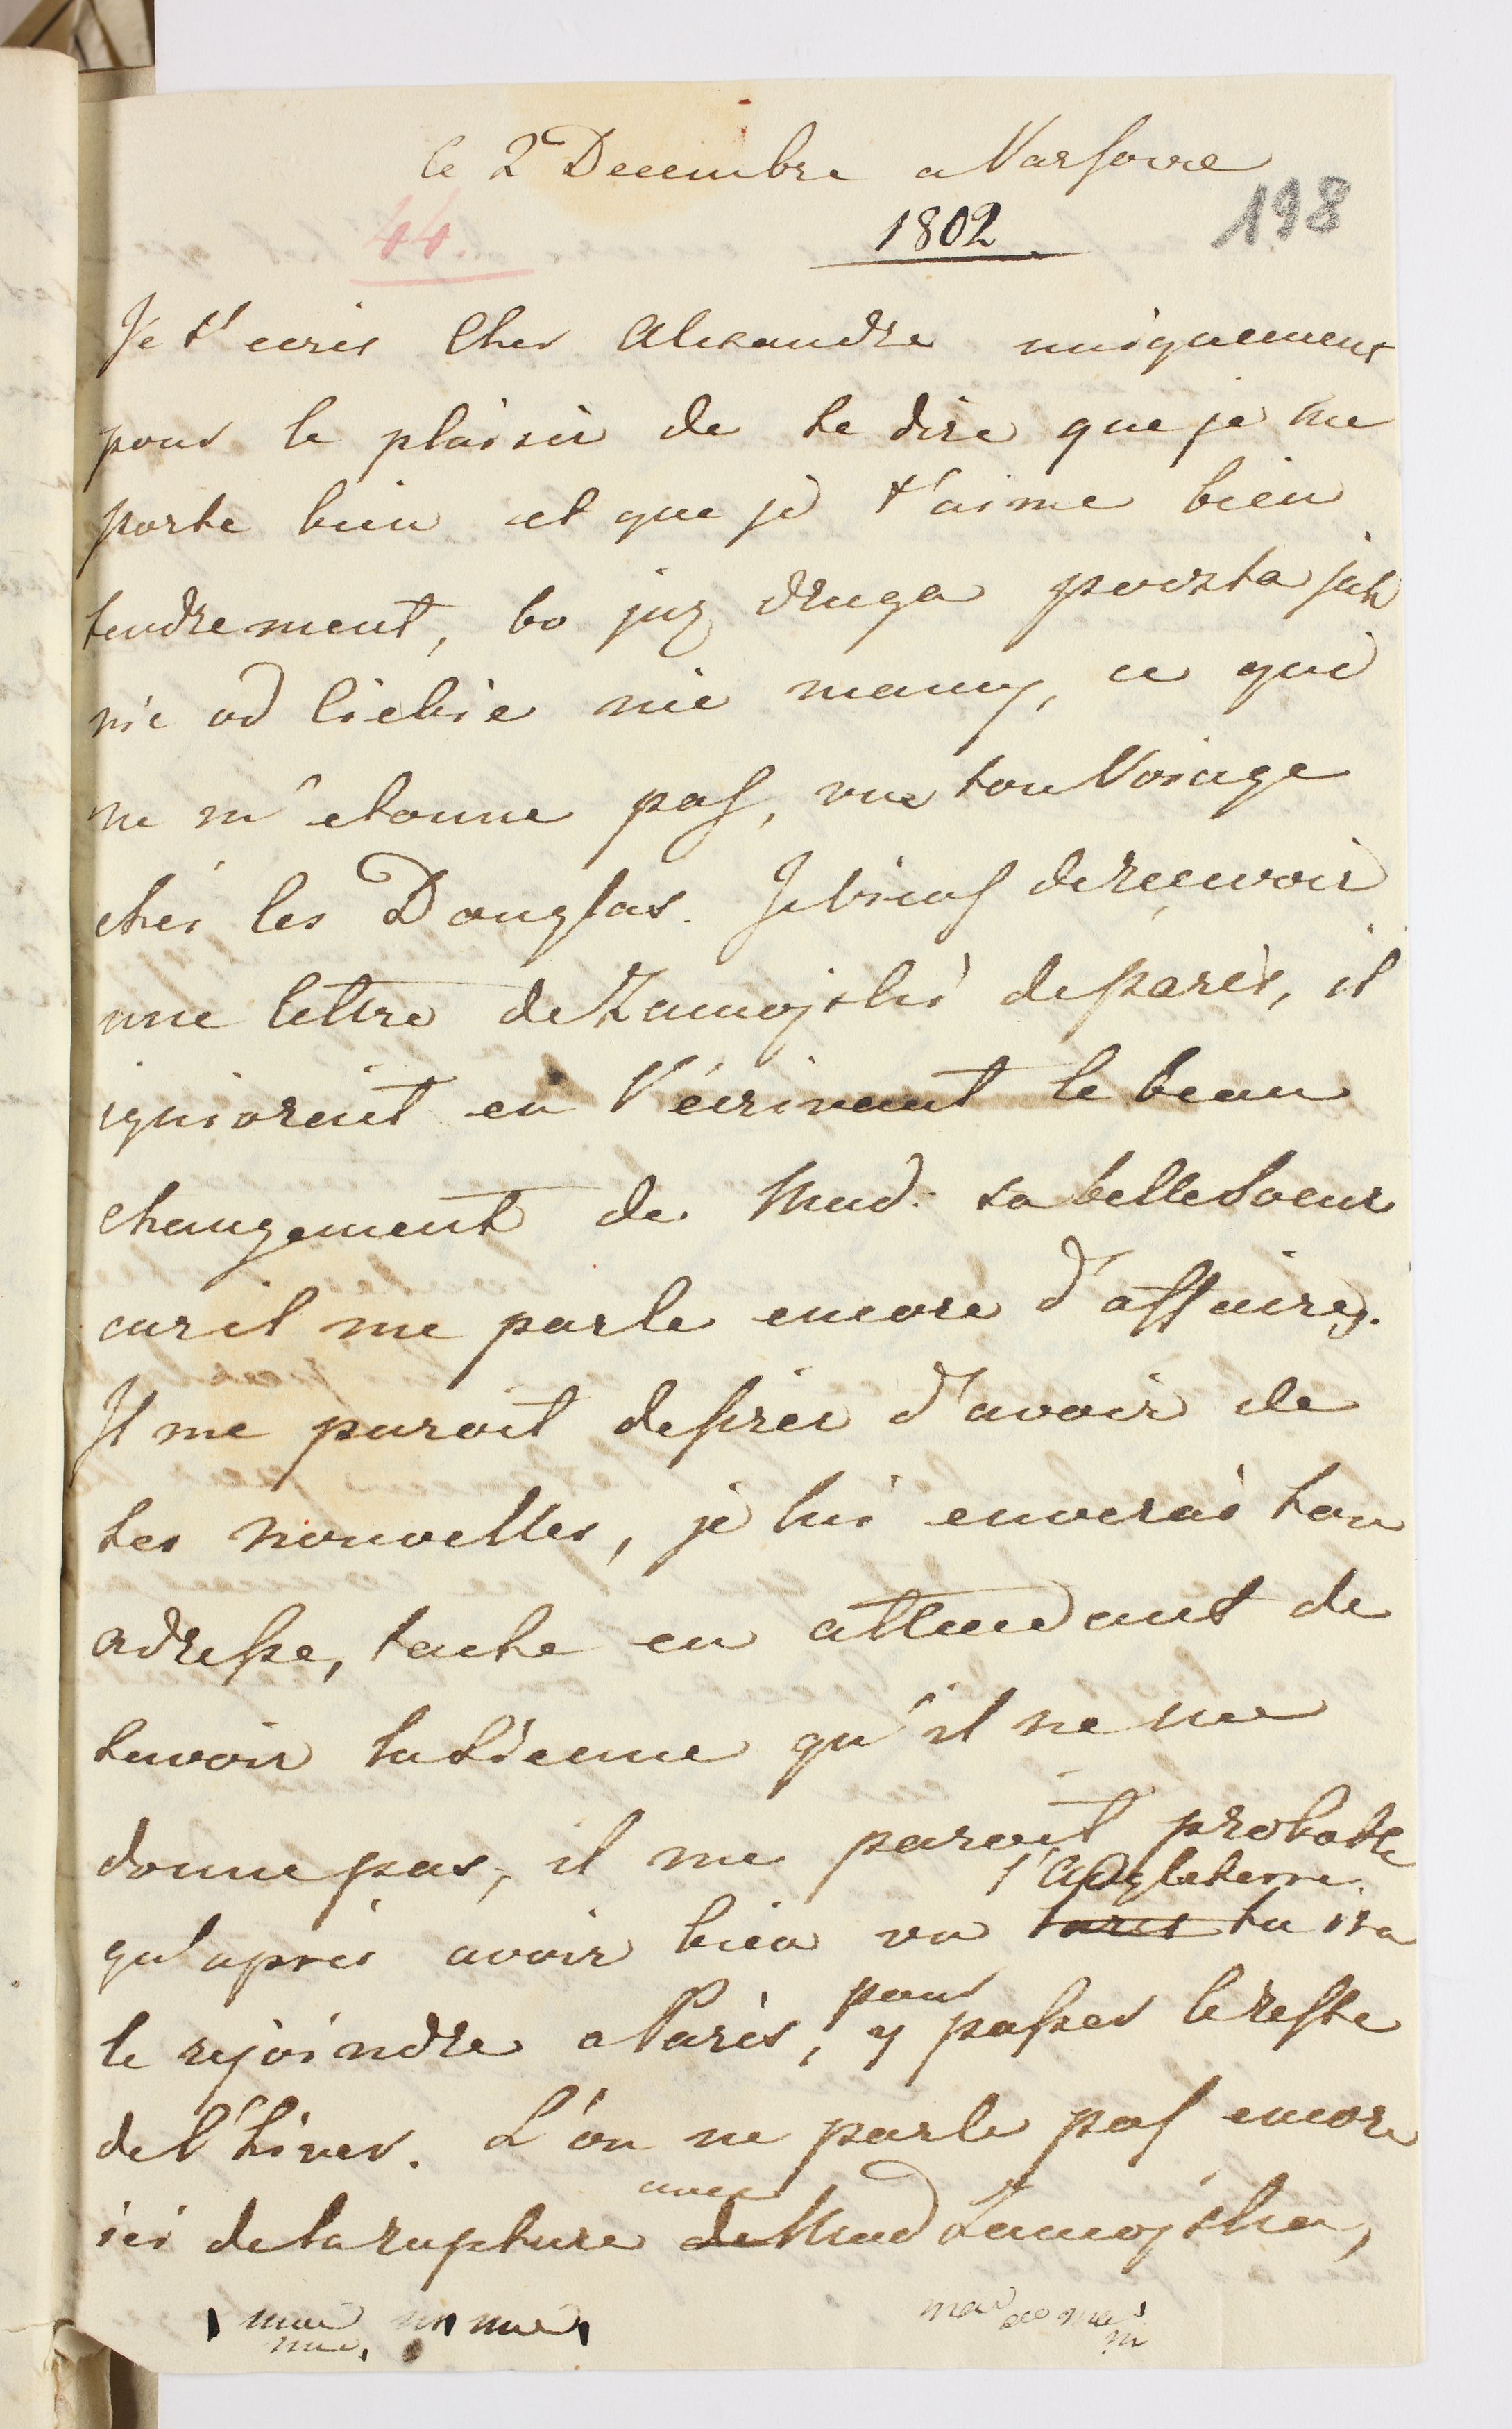 le 2 Decembre a Varsovie
44.
1802
198
Je t'ecris Cher Alexandre uniquement
pour le plaisir de te dire que je me
porte bien et que je t'aime bien
tendrement, bo juz druga poczta jak
nic od Ciebie nie mamy, ce qui
ne m'etonne pas, vue ton Voiage
chéz les Douglas. Je viens de reçevoir
une lettre de Zamojski de paris, il
ignioroit en l'écrivant le beau
changement de Mad. sa belle Soeur
car il me parle encore d'affaires.
Il me paroit desirer d'avoir de
tes nouvelles, je lui enverai ton
adresse, tache en attendant de
savoir la Sienne qu'il ne me
donne pas, il me paroit probable
l'Angleterre
qu'après avoir bien vu Paris tu ira
pour
le rejoindre a Paris, y passer le reste
de l'hiver. L'on ne parle pas encore
avec
ici de ta rupture de Mad Zamojska,